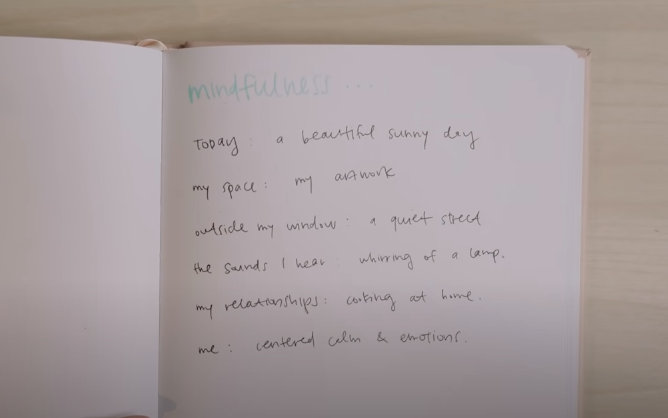 mindfulness...
Today: a beautiful sunny day
my space: my artwork
outside my window: a quiet street
the sounds I hear: whirring of a lamp.
my relationships: cooking at home.
me: centered calm & emotions.